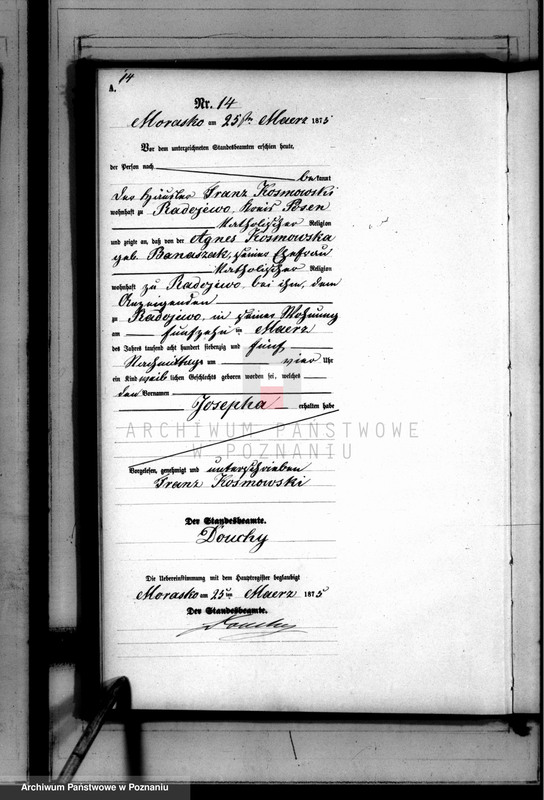 14
A.
Nr. 14
Morasko am 25ten Maerz 1875
Vor dem unterzeichneten Standesbeamten erschien heute,
der Person nach
bekannt
der Häusler Franz Kosmowski
wohnhaft zu Radojewo, Kreis Posen
Katholischer Religion
und zeigte an, daß von der Agnes Kosmowska
geb. Banaszak, seiner Ehefrau
Katholischer Religion
wohnhaft zu Radojewo bei ihm, dem
Anzeigenden
zu Radojewo, in seiner Wohnung
am fünfzehn ten Maerz
des Jahres tausend acht hundert siebenzig und fünf
Nachmittags um vier Uhr
ein Kind weib lichen Geschlechts geboren worden sei, welches
den Vornamen
Josepha erhalten habe
ARCHIWUM PAŃSTWOWE
W POZNANIU
Vorgelesen, genehmigt und unterschrieben
Franz Kosmowski
Der Standesbeamte.
Douchy
Die Uebereinstimmung mit dem Hauptregister beglaubigt
Morasko am 25ten Maerz 1875
Der Standesbeamte.
Douchy
Archiwum Państwowe w Poznaniu